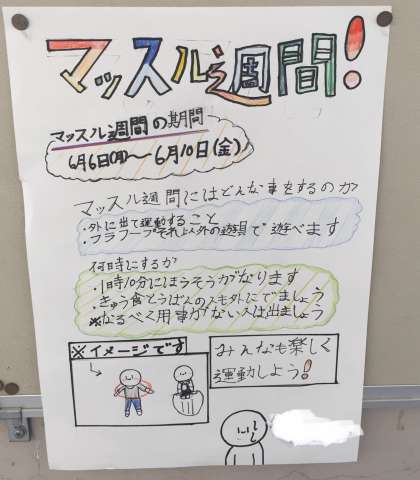 マッスル週間!
マッスル週間の期間
6月6日(月)〜6月10日(金)
マッスル週間にはどんな事をするのか
・外に出て運動すること
・フラフープそれ以外の遊具で遊べます
何時にするか
・1時10分にほうそうがなります
・きゅう食とうばんの人も外にでましょう
※なるべく用事がない人は出ましょう
※イメージです
みんなも楽しく
運動しよう!